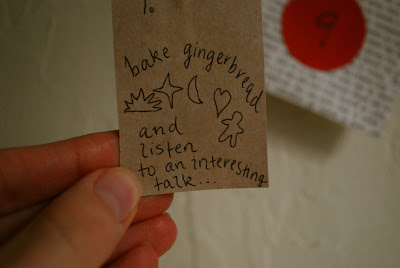 1.
bake gingerbread
and
listen
to an interesting
talk...
9